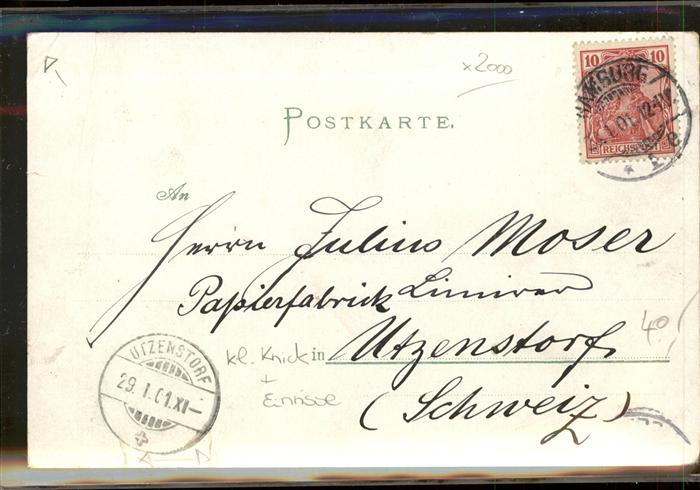 x2000
10 10
HAMBURG
1.01.12-1N
REICHSPOST
POSTKARTE.
An
Herrn Julius Moser
Papierfabrick
Utzenstorf
in
(Schweiz)
40,
kl. Knick
+
Einrisse
UTZENSTORF
29.I.01.XI-